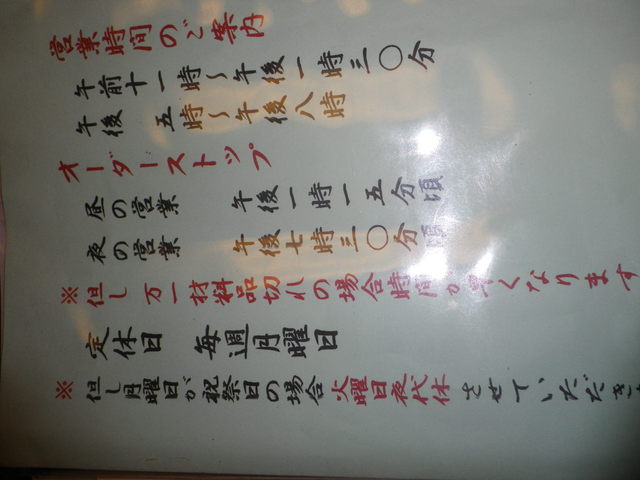 営業時間のご案内
午前十一時～午後一時三〇分
午後五時～午後八時
オーダーストップ
昼の営業 午後一時一五分頃
夜の営業 午後七時三〇分頃
※但し万一材料品切れの場合時間が早くなります
定休日 毎週月曜日
※但し月曜日が祝祭日の場合火曜日夜代休させていただき